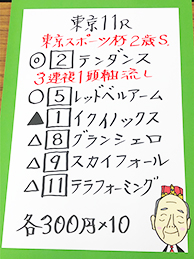 東京11R
東京スポーツ杯2歳S.
◎2テンダンス
3連複1頭軸流し
○5レッドベルアーム
▲1イクイノックス
△8グランシェロ
△9スカイフォール
△11テラフォーミング
各300円×10